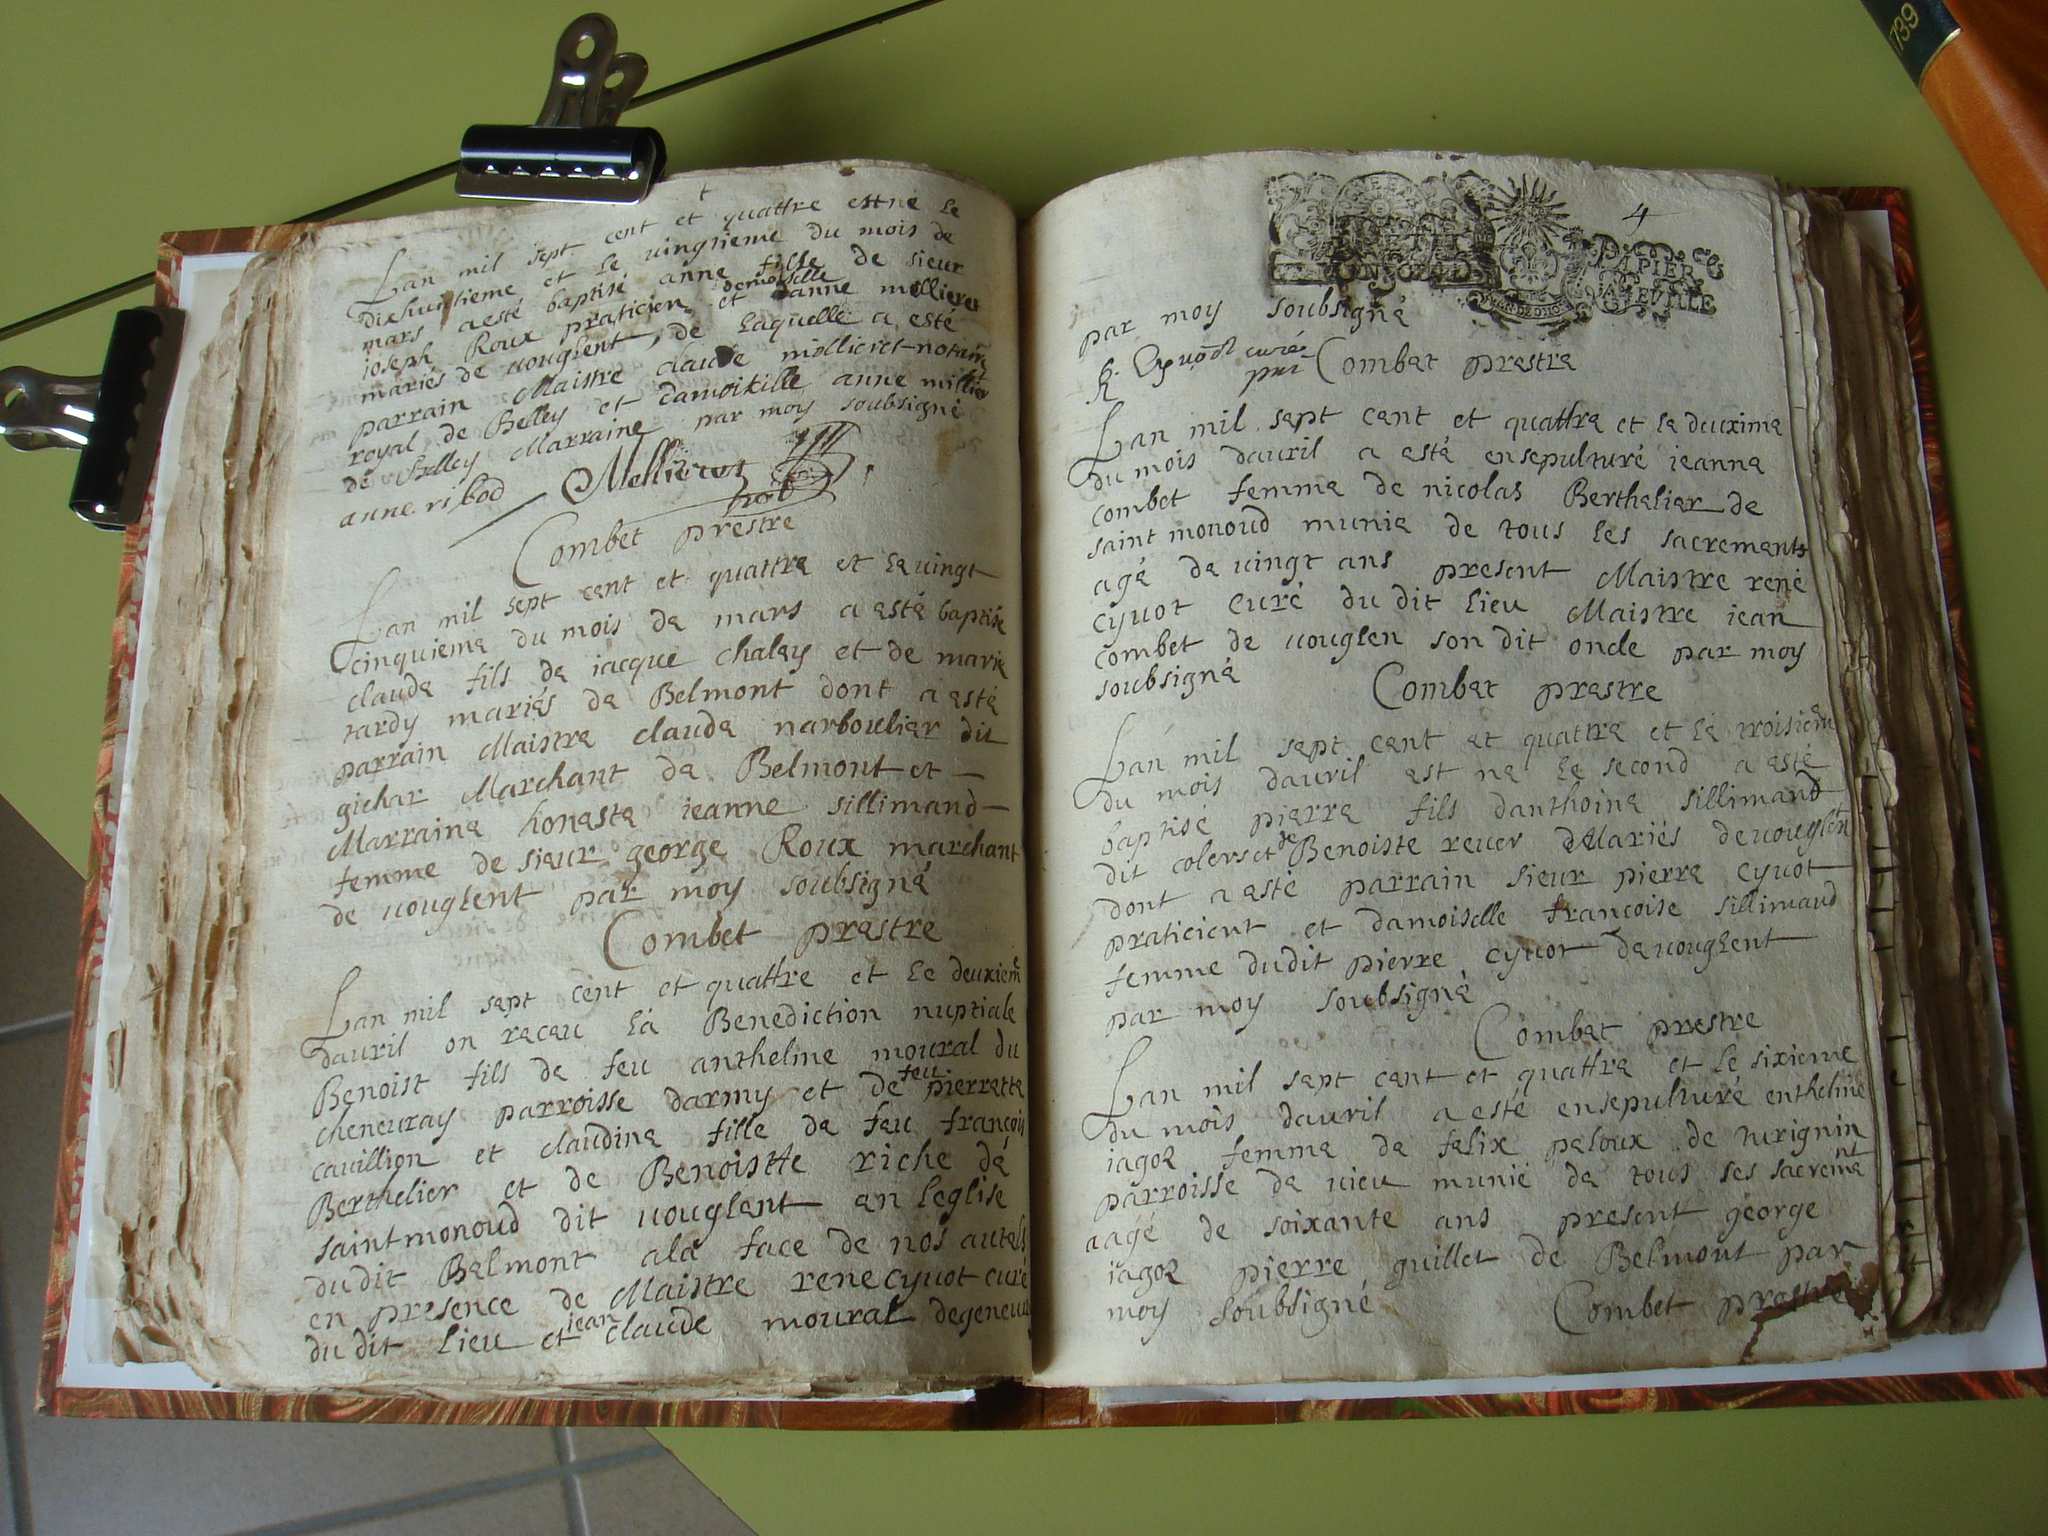 Lan mil sept cent et quattre est né le
dixhuittieme et le vingtieme du mois de
mars a esté baptisé anne fille de sieur
ioseph Roux praticien et demoiselle anne mellieres
mariés de uouglent, de laquelle a esté
parrain Maistre claude mollieret notaire
royal de Belley et damoiselle anne
de Belley Marraine par moy soubsigné
anne ribod Mellieres
Combet prestre
Lan mil sept cent et quattre et le vingt
cinquieme du mois de mars a esté baptisé
claude fils de iacque chaley et de marie
tardy mariés de Belmont dont a esté
parrain Maistre claude narboulier dit
gichar Marchant de Belmont et
Marraine honeste ieanne sillimand
femme de sieur george Roux marchant
de uouglent par moy soubsigné
Combet prestre
Lan mil sept cent et quattre et le deuxiem
dauril on receu la Benediction nuptiale
Benoist fils de feu anthelme moural du
cheneuray parroisse darmy et de feu pierrette
cauillion et claudine fille de feu francois
Berthelier et de Benoistte riche de
saint monoud dit uouglent en leglise
dudit Belmont ala face de nos autels
en presence de Maistre rene cyuot curé
du dit lieu et jean claude moural degeneue
4
PAPIER
par moy soubsigné
curé
Combet prestre
Lan mil sept cent et quattre et le deuxime
du mois dauril a esté ensepulturé ieanne
combet femme de nicolas Berthelier de
saint monoud munie de tous les sacrements
agé de uingt ans present Maistre rené
cyuot curé du dit lieu Maistre iean
combet de uouglen son dit oncle par moy
soubsigné
Combet prestre
Lan mil sept cent et quattre et le troisiem
du mois dauril est ne le second a esté
baptisé pierre fils danthoine sillimand
dit coleret de Benoiste reuer Mariés de uouglent
dont a esté parrain sieur pierre cyuot
praticient et damoiselle francoise sillimand
femme dudit pierre cyuot de uouglent
par moy soubsigné
Combet prestre
Lan mil sept cent et quattre et le sixieme
du mois dauril a esté ensepulturé enthelme
iagoz femme de felix peloux de
parroisse de uieu munié de tous ses sacremnt
aagé de soixante ans present george
iagoz pierre guillet de Belmont par
moy soubsigné Combet prestre
739